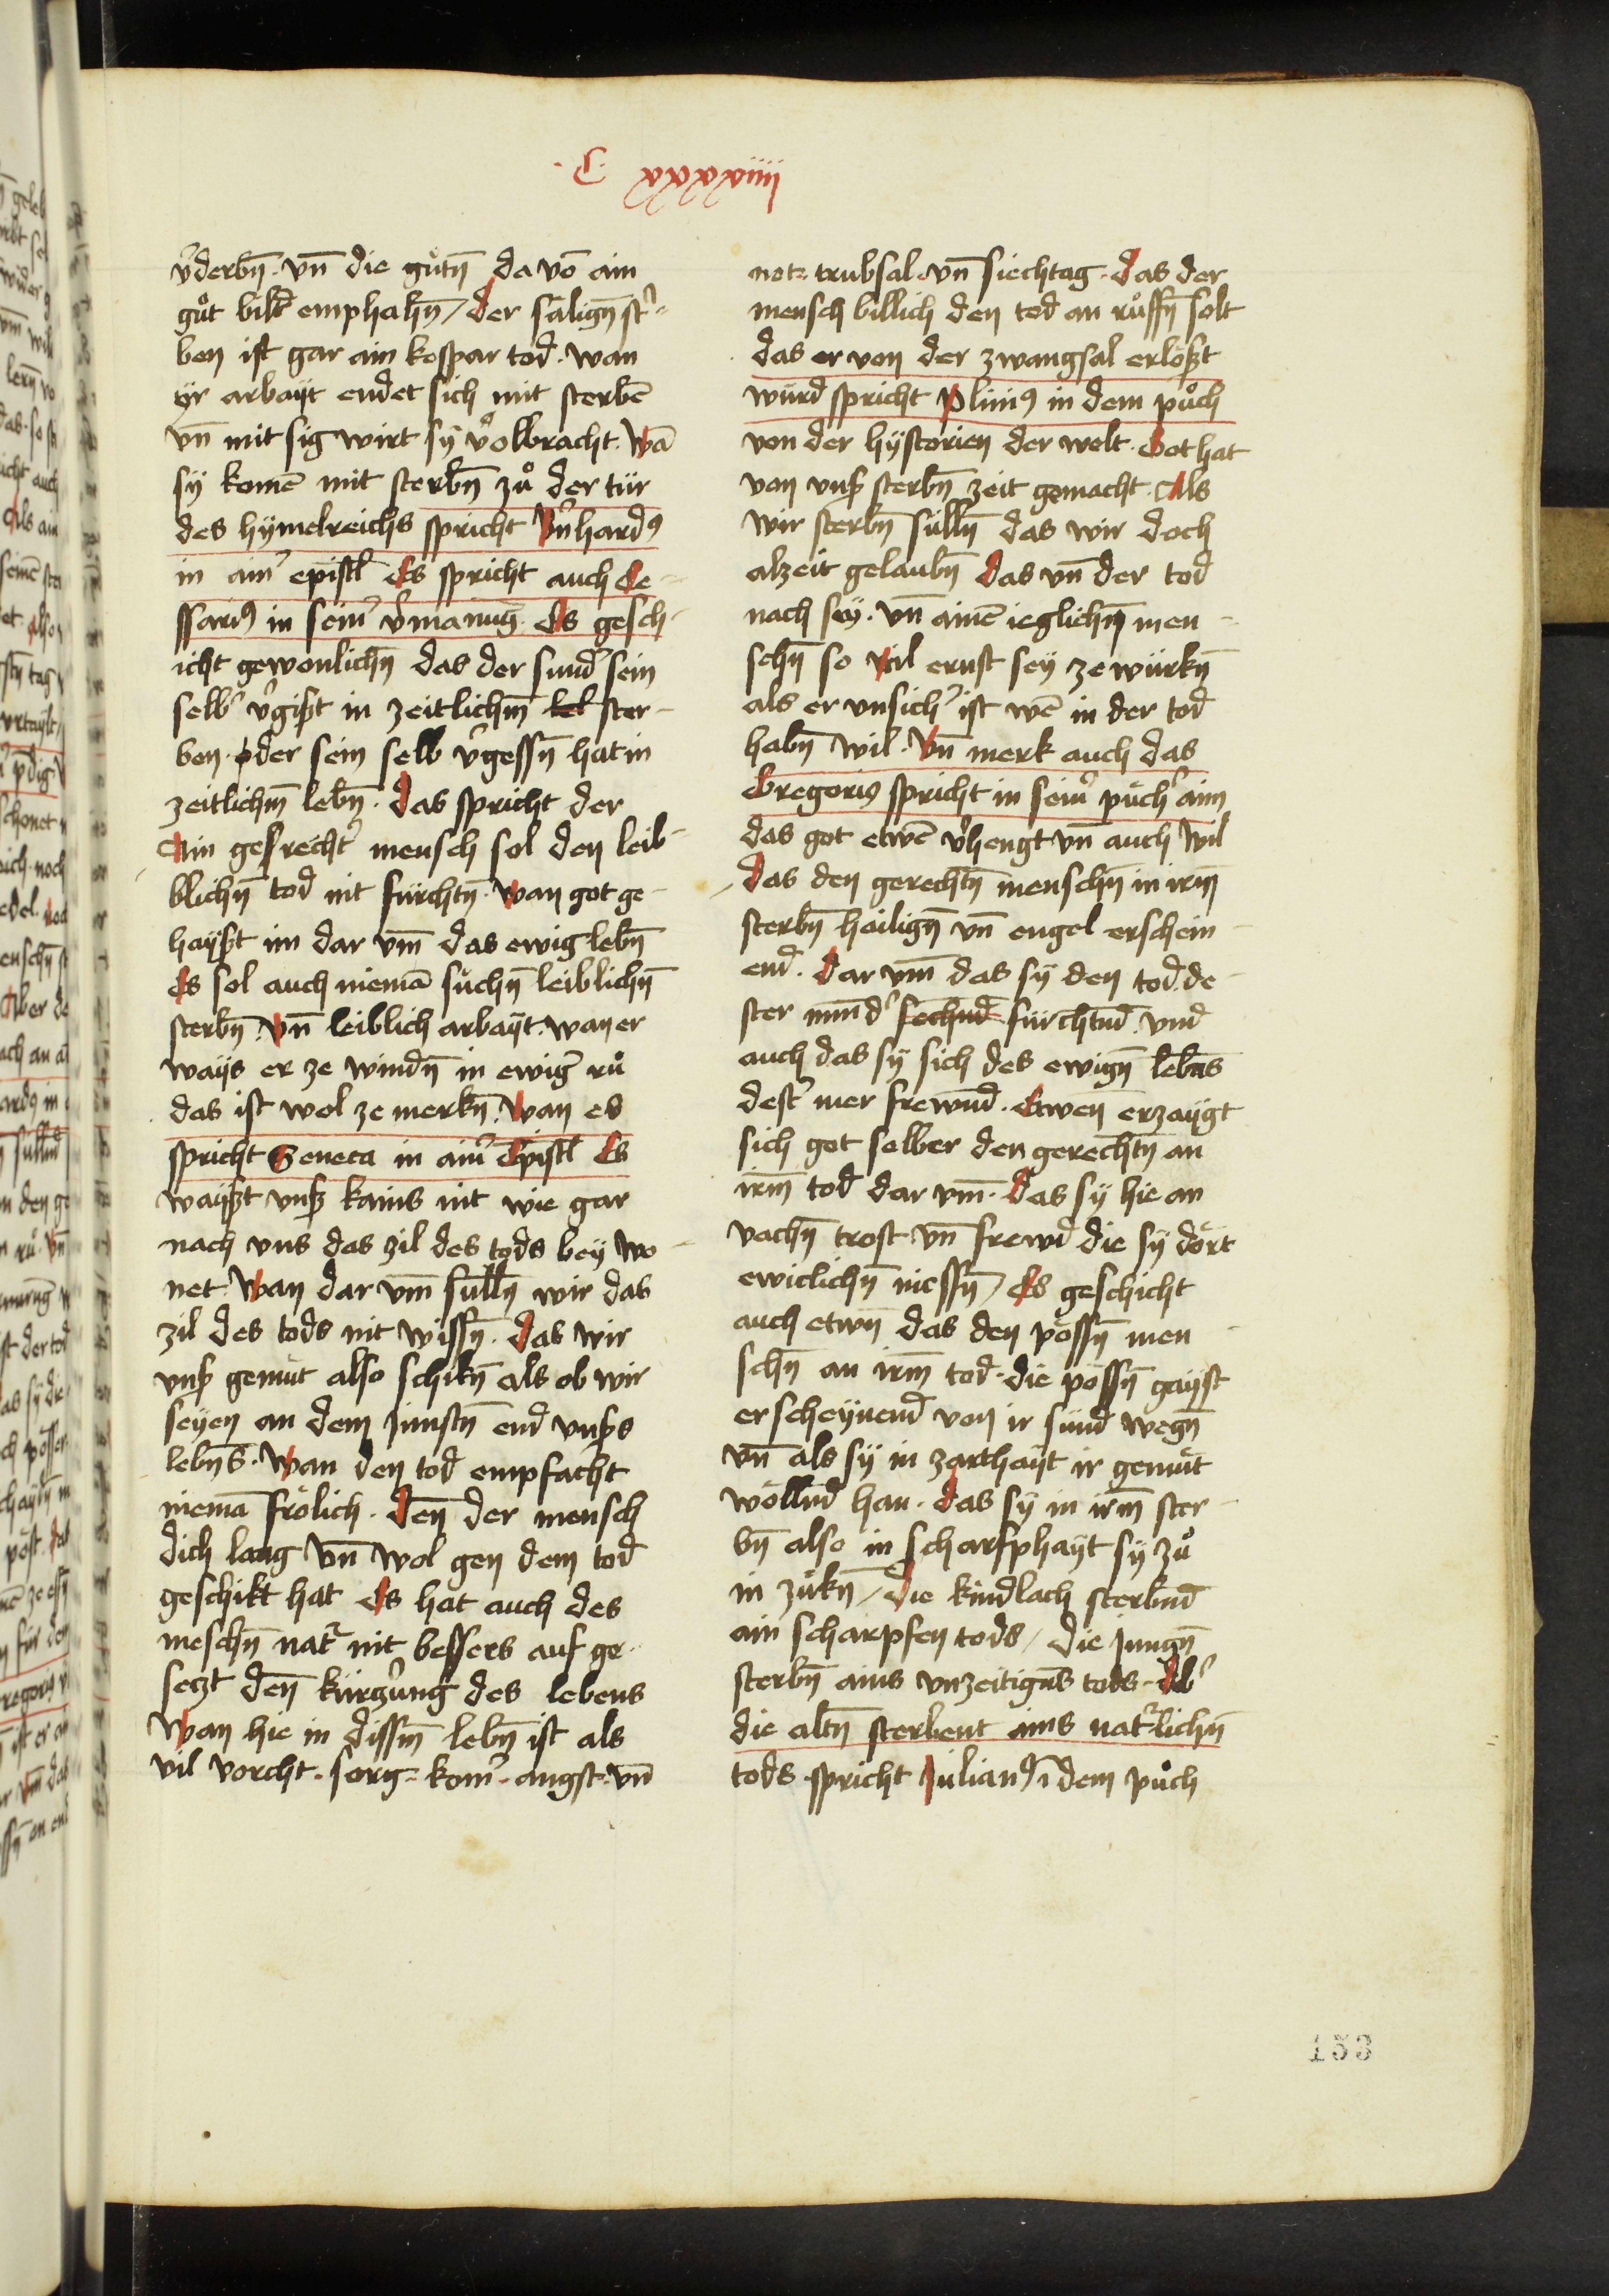 C xxxxviiii
v̉derbn̄ · vn̄ die gůtn̄ da vō ain
gůt bild emphahn̄ / der sälign̄ st̉-
ben ist gar ain kospar tod · wan
yr arbayt endet sich mit sterbē
vn̄ mit sig wirt sy v̉olbracht · Wā
sy komē mit sterbn̄ zů der tür
des hymelreichs spricht Bn̉hardꝰ
in ain̉ epistl Es spricht auch Ce-
ssariꝰ in sein̉ v̉manūg · Es gesch-
icht gewonlichn̄ das der sund̉ sein
selb̉ v̉gißt in zeitlichm̄ leb ster-
ben · oder sein selb v̉gessn̄ hat in
zeitlichm̄ lebn̄ · Das spricht der
Ain gesrecht̉ mensch sol den leib-
blichn̄ tod nit fürchtn̄ · Wan got ge-
hayßt im dar vm̄ das ewig lebn̄
Es sol auch niemā sůchn̄ leiblichn̄
sterbn̄ · Vn̄ leiblich arbayt · wan er
ways er ze windn̄ in ewig̉ rů
das ist wol ze merkn̄ · Wan es
spricht Seneca in ain̉ Epistl Es
wayßt vnß kains nit wie gar
nach vns das zil des tods bey wo-
net · Wan dar vm̄ sülln̄ wir das
zil des tods nit wissn̄ · Das wir
vnß gemüt also schikn̄ als ob wir
seyen an dem Junstn̄ end vnßs
lebn̄s · Wan den tod empfächt
niemā frölich · Den̄ der mensch
dich lang vn̄ wol gen dem tod
geschikt hat Es hat auch des
meschn̄ nat̉ nit bessers auf ge-
setzt den̄ kürtzung des lebens
Wan hie in dissm̄ lebn̄ ist als
vil vorcht · sorg · kom̉ · angst · vn̄
not · trubsal · vn̄ siechtag · Das der
mensch billich den tod an růffn̄ solt
das er von der zwangsal erlößt
würd spricht Pliniꝰ in dem půch
von der hystorien der welt · Got hat
von vnß sterbn̄ zeit gemacht · Als
wir sterbn̄ sülln̄ das wir doch
alzeit gelaubn̄ Das vn̄ der tod
nach sey · vn̄ ainē ieglichn̄ men-
schn̄ so vil ernst sey ze würkn̄
als er vnsich̉ ist wē in der tod
habn̄ wil · Vn̄ merk auch das
Gregoriꝰ spricht in sein̉ püch̉ ain
das got etwē v̉hengt vn̄ auch wil
Das den gerechtn̄ menschn̄ in irm̄
sterbn̄ heilign̄ vn̄ engel erschein-
end · Dar vm̄ das sy den tod de-
ster mind̉ fechnd fürchtnd · vnd
auch das sy sich des ewign̄ lebēs
dest̉ mer frewnd · Etwen erzaygt
sich got selber den gerechtn̄ an
irm̄ tod dar vm̄ · Das sy hie an
vachn̄ trost vn̄ frewd die sy dört
ewiclichn̄ niessn̄ / Es geschicht
auch etwn̄ das den pössn̄ men-
schn̄ an irm̄ tod · die pössn̄ gayst
erscheynend von ir sünd wegn̄
vn̄ als sy in zarthayt ir gemüt
wöllnd han · Das sy in irm̄ ster-
bn̄ also in scharfphayt sy zů
in zükn̄ / Die kindlach sterbnd
ain scharpfen tods / die Jungn̄
sterbn̄ ains vnzeitigns tods · Ab̉
die altn̄ sterbent ains nat̉lichn̄
tods · spricht Julianꝰ ī dem půch
153